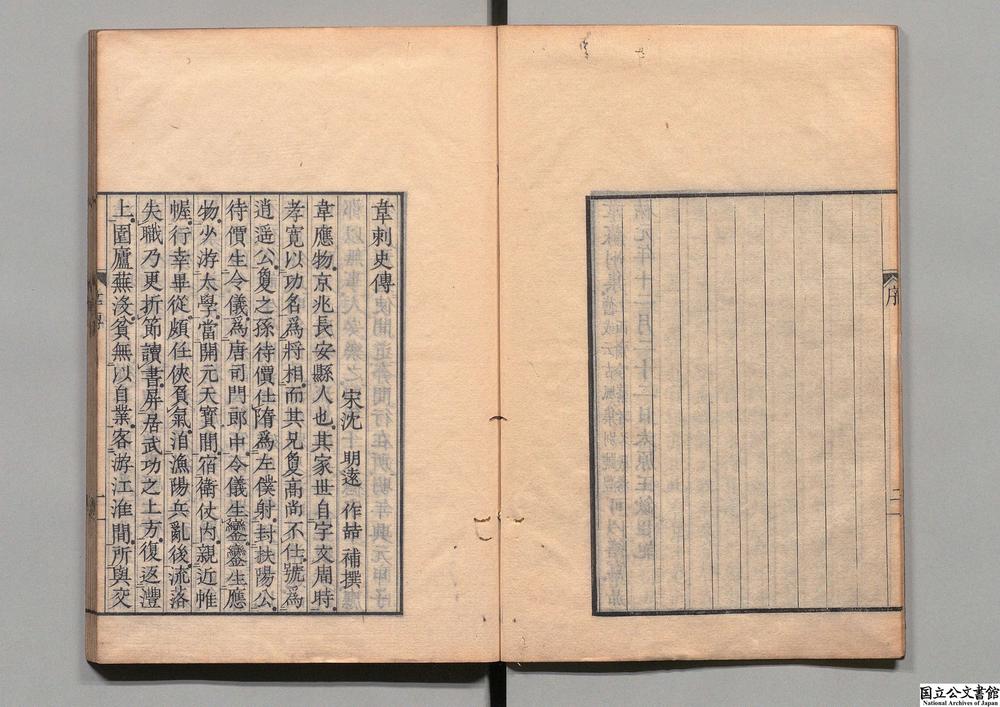 序
二
韋刺史傳
宋沈 明遠 作喆 補撰
韋應物京兆長安縣人也其家世自宇文周時
孝寬以功名爲將相而其兄敻高尚不仕號爲
逍遥公敻之孫待價仕隋爲左僕射封扶陽公
待價生令儀爲唐司門郎中令儀生鑾鑾生應
物少游太學當開元天寶間宿衛仗内親近帷
幄行幸畢從頗任俠負氣洎漁陽兵亂後流落
失職乃更折節讀書屏居武功之上方復返灃
上園廬蕪没貧無以自業客游江淮間所與交
国立公文書館
National Archives of Japan